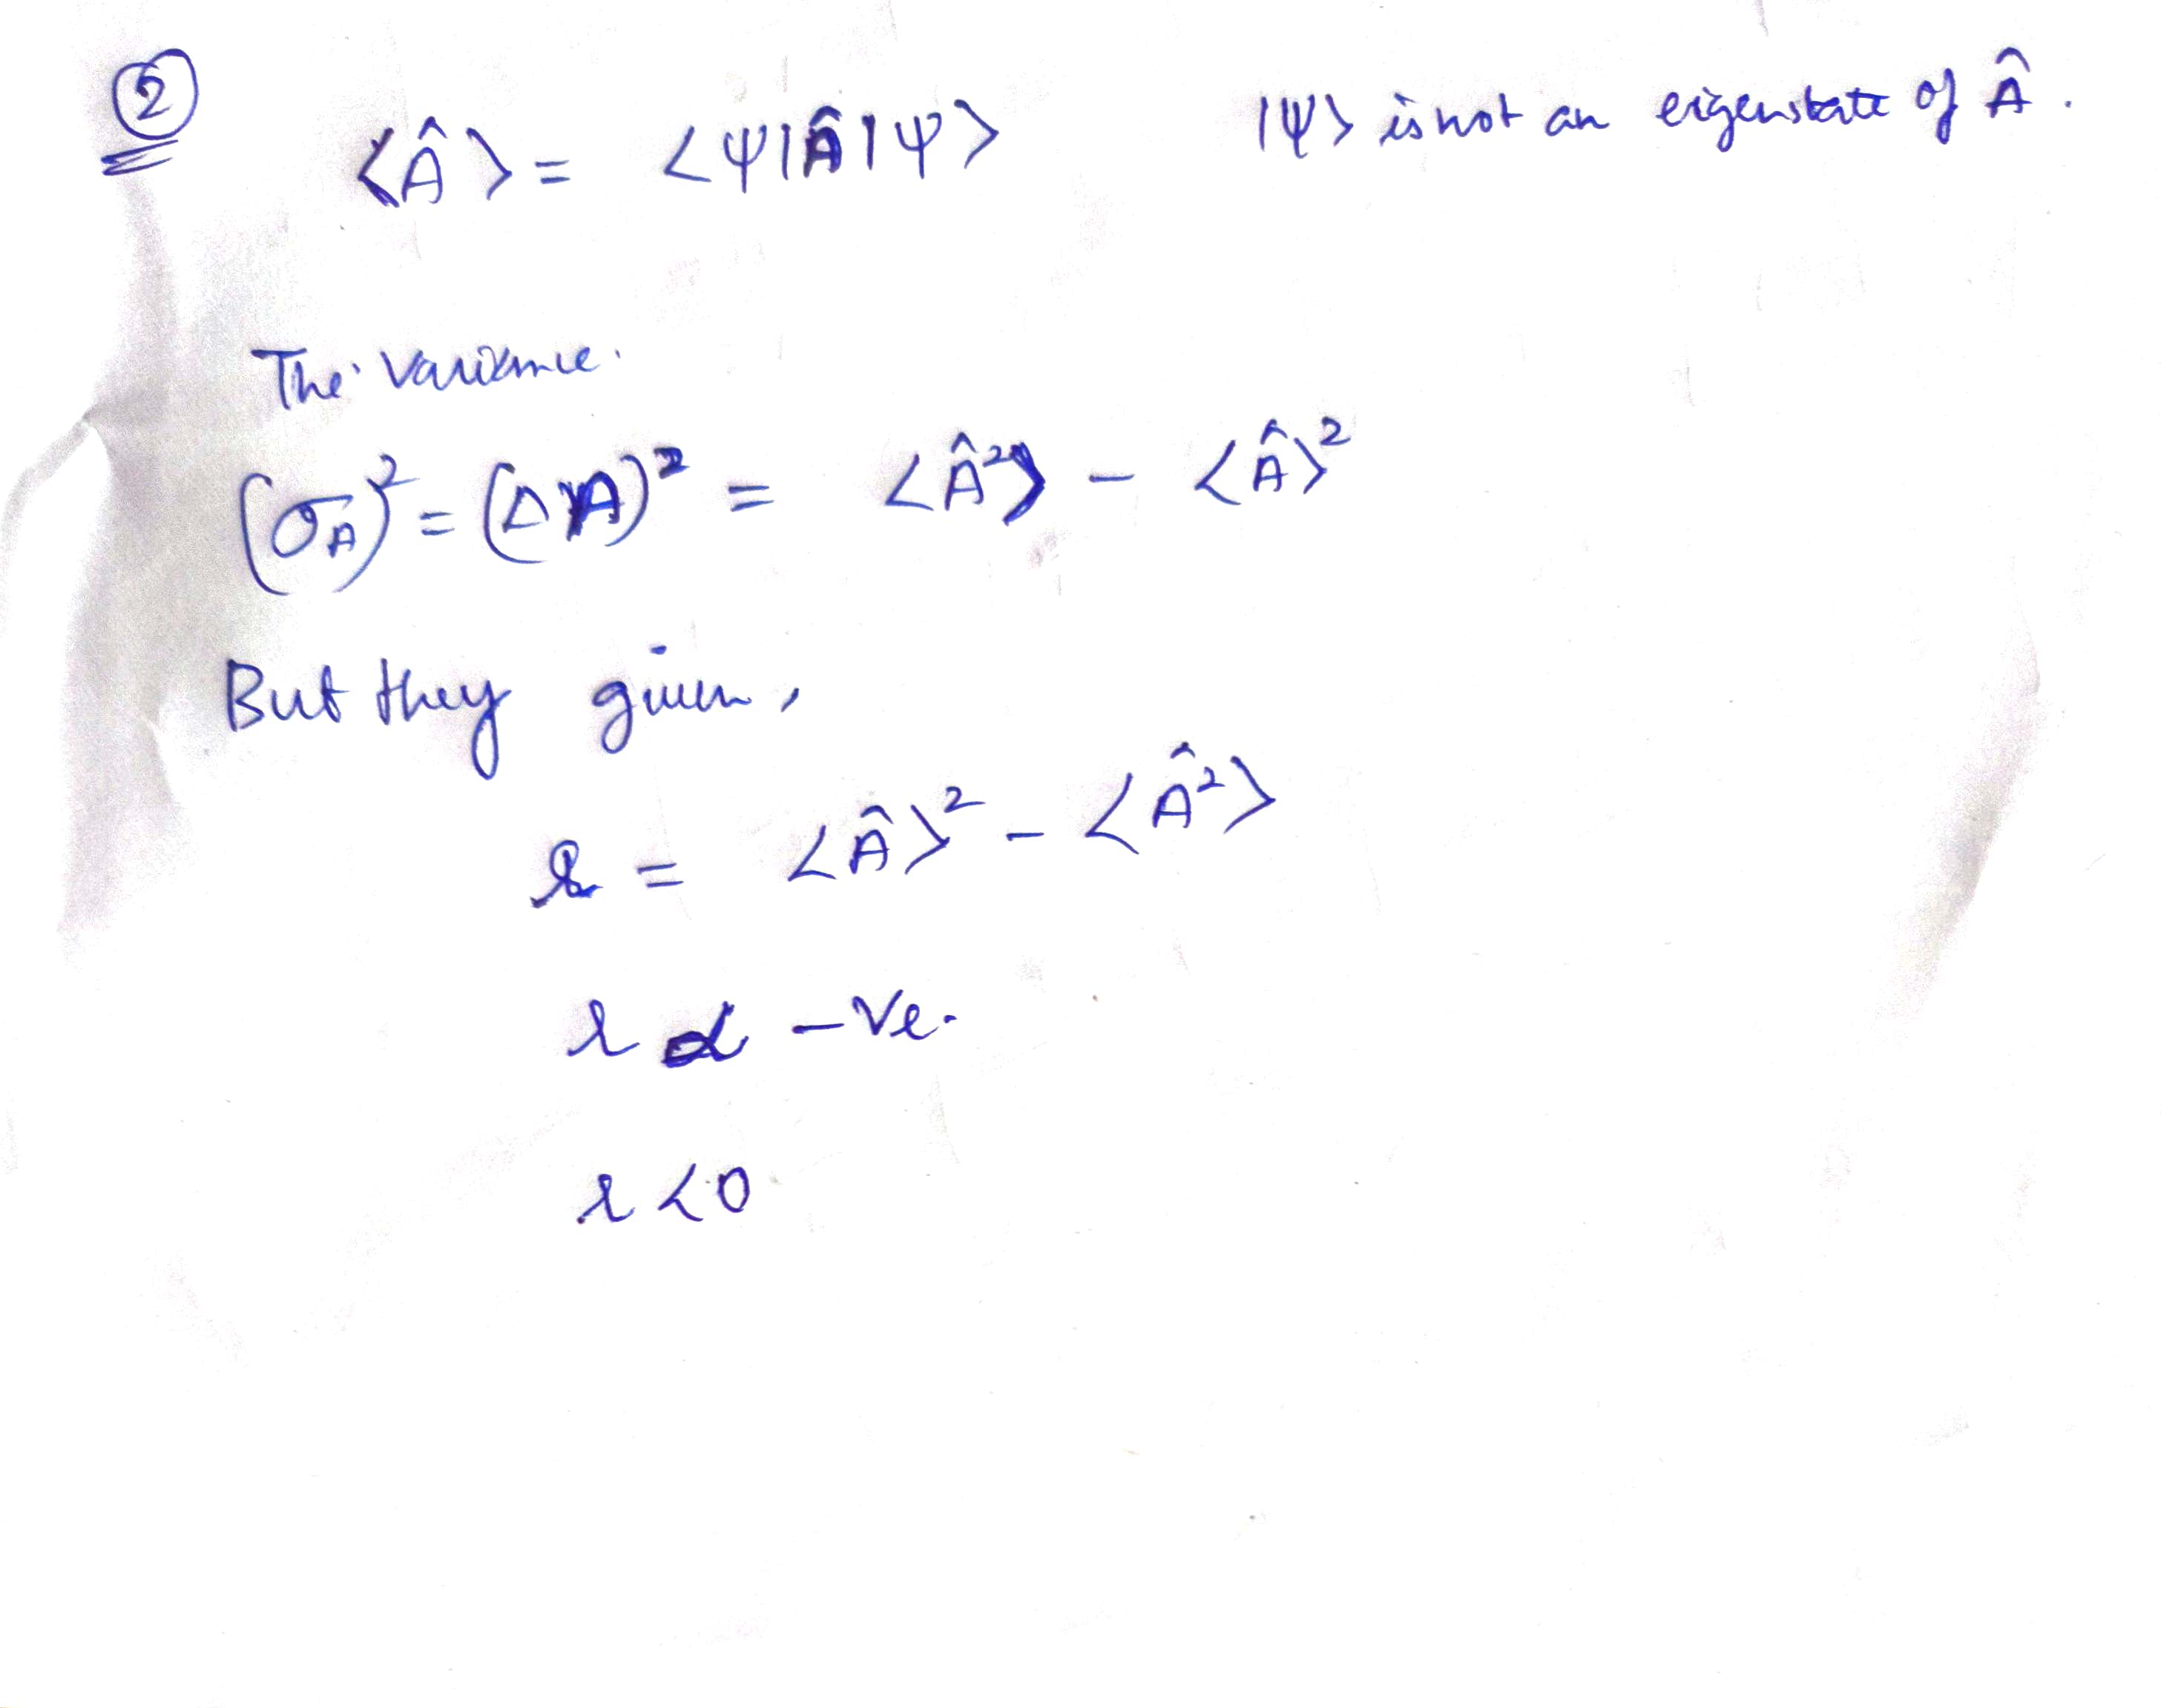 ②
⟨Â⟩ = ⟨ψ|Â|ψ⟩ |ψ⟩ is not an eigenstate of Â.
The variance.
(σ_A)² = (ΔA)² = ⟨Â²⟩ - ⟨Â⟩²
But they given,
r = ⟨Â⟩² - ⟨Â²⟩
r α -ve.
r < 0